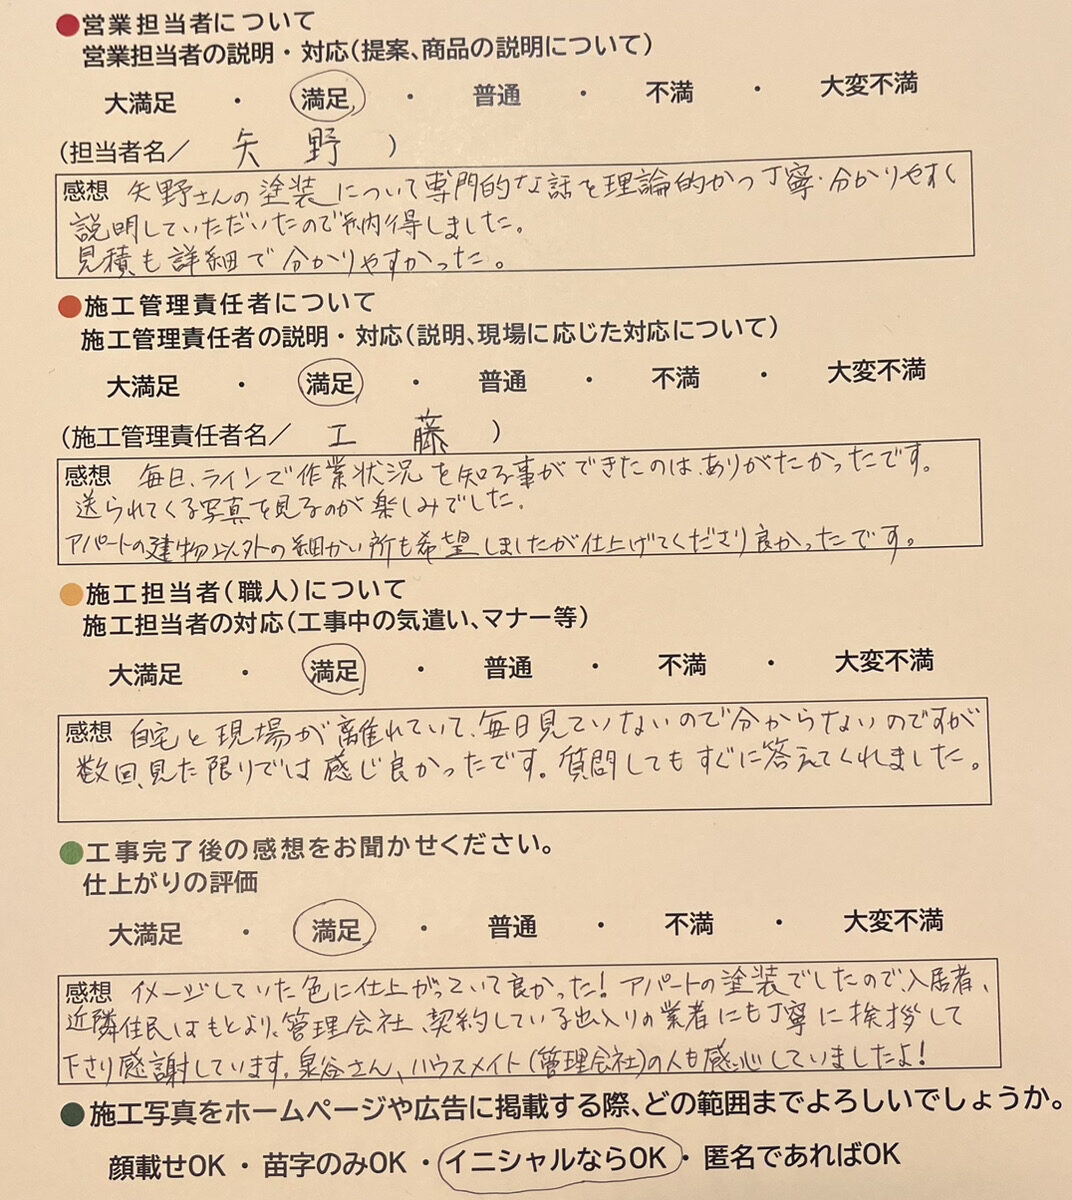 ●営業担当者について
営業担当者の説明・対応(提案、商品の説明について)
大満足 ・ 満足 ・ 普通 ・ 不満 ・ 大変不満
(担当者名/ 矢野 )
感想 矢野さんの塗装について専門的な話を理論的かつ丁寧・分かりやすく
説明していただいたので納得しました。
見積も詳細で分かりやすかった。
●施工管理責任者について
施工管理責任者の説明・対応(説明、現場に応じた対応について)
大満足 ・ 満足 ・ 普通 ・ 不満 ・ 大変不満
(施工管理責任者名/ 工藤 )
感想 毎日、ラインで作業状況を知る事ができたのは、ありがたかったです。
送られてくる写真を見るのが楽しみでした。
アパートの建物以外の細かい所も希望しましたが仕上げてくださり良かったです。
●施工担当者(職人)について
施工担当者の対応(工事中の気遣い、マナー等)
大満足 ・ 満足 ・ 普通 ・ 不満 ・ 大変不満
感想 自宅と現場が離れていて、毎日見ていないので分からないのですが
数回、見た限りでは感じ良かったです。質問してもすぐに答えてくれました。
●工事完了後の感想をお聞かせください。
仕上がりの評価
大満足 ・ 満足 ・ 普通 ・ 不満 ・ 大変不満
感想 イメージしていた色に仕上がっていて良かった!アパートの塗装でしたので、入居者、
近隣住民はもとより、管理会社、契約している出入りの業者にも丁寧に挨拶して
下さり感謝しています。泉谷さん、ハウスメイト(管理会社)の人も感心していましたよ!
●施工写真をホームページや広告に掲載する際、どの範囲までよろしいでしょうか。
顔載せOK ・ 苗字のみOK ・ イニシャルならOK ・ 匿名であればOK